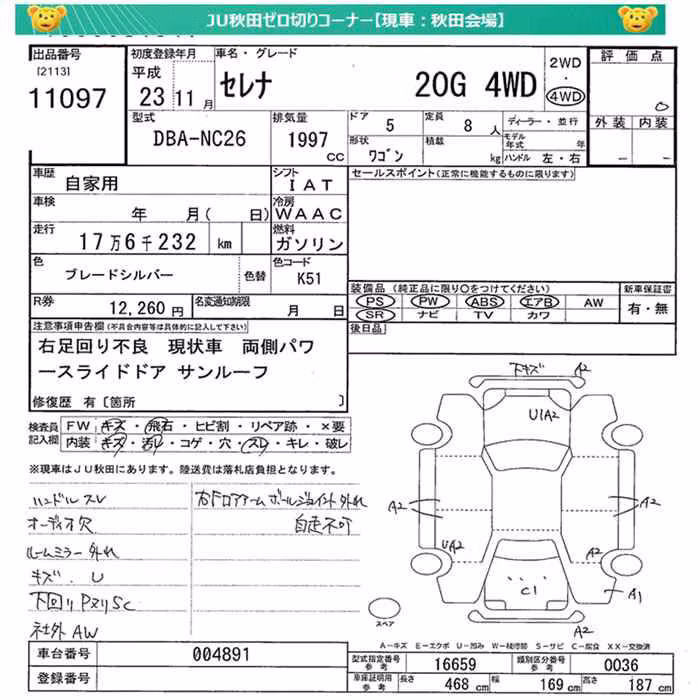 JU秋田ゼロ切りコーナー【現車：秋田会場】
出品番号
[2113]
11097
初度登録年月
平成
23 11月
車名・グレード
セレナ 20G 4WD
2WD
・
4WD
評価点
0
外装 内装
－ －
型式
DBA-NC26
排気量
1997
cc
ドア 5
定員 8 人
形状 ワゴン
積載 kg
ディーラー・並行
モデル年式 年
ハンドル 左・右
車歴
自家用
シフト
IAT
車検
年 月( 日)
冷房
WAAC
走行
17万6千232 km
燃料
ガソリン
色
ブレードシルバー
色替
色コード
K51
R券
12,260円
名変通知期限
月 日
セールスポイント(正常に機能するものに限ります)
装備品 (純正品に限り○をつけてください)
PS PW ABS エアB AW
SR ナビ TV カワ
新車保証書
有・無
後日品
注意事項申告欄(不具合内容等は具体的に記入して下さい)
右足回り不良 現状車 両側パワ
ースライドドア サンルーフ
修復歴 有〔箇所 〕
検査員記入欄
FW キズ・飛石・ヒビ割・リペア跡・×要
内装 キズ・汚レ・コゲ・穴・スレ・キレ・破レ
※現車はJU秋田にあります。陸送費は落札店負担となります。
ハンドルスレ
オーディオ欠
ルームミラー外れ
キズ．U
下回りPヌリSC
社外AW
右ドロアアームボールジョイント外れ
自走不可
下キズ A2
U1A2
A2
A2
UA2
A2
C1
A1
A2
スペア
A－キズ E－エクボ U－凹み W－補修跡 S－サビ C－腐食 XX－交換済
車台番号 004891
登録番号
型式指定番号参考 16659
類別区分番号参考 0036
車庫証明用参考 長さ 468 cm 幅 169 cm 高さ 187 cm